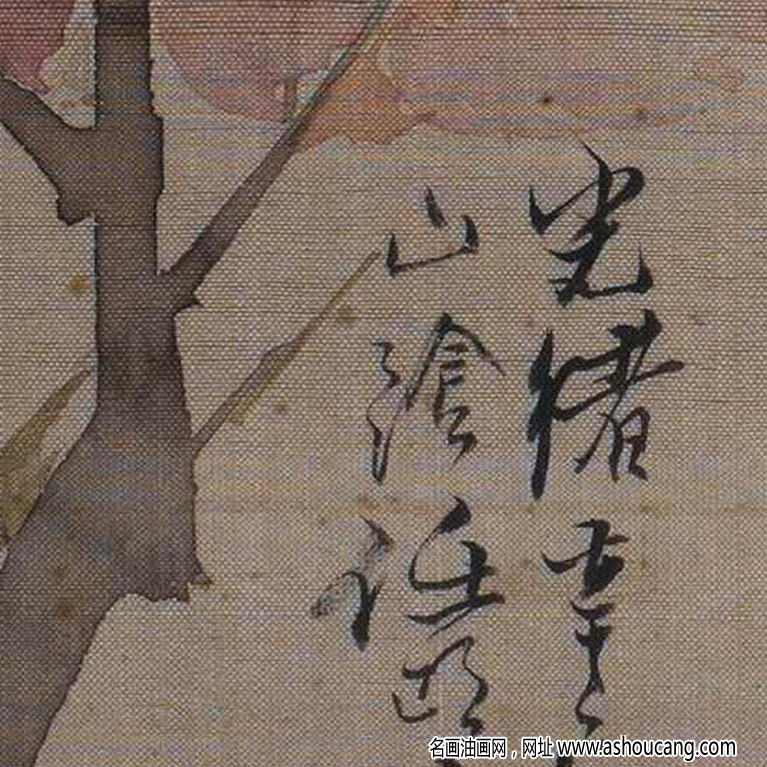 光緒
山陰任頤
名画油画网，网址 www.ashoucang.com